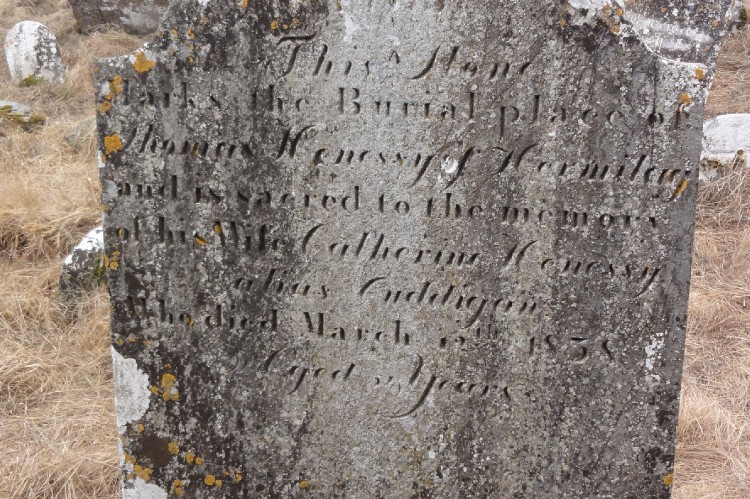 This Stone
Marks the Burial place of
Thomas Henessy of Hermitag
and is sacred to the memory
of his Wife Catherine Henessy
alias Cuddigan
Who died March 12th 1838
Aged Years